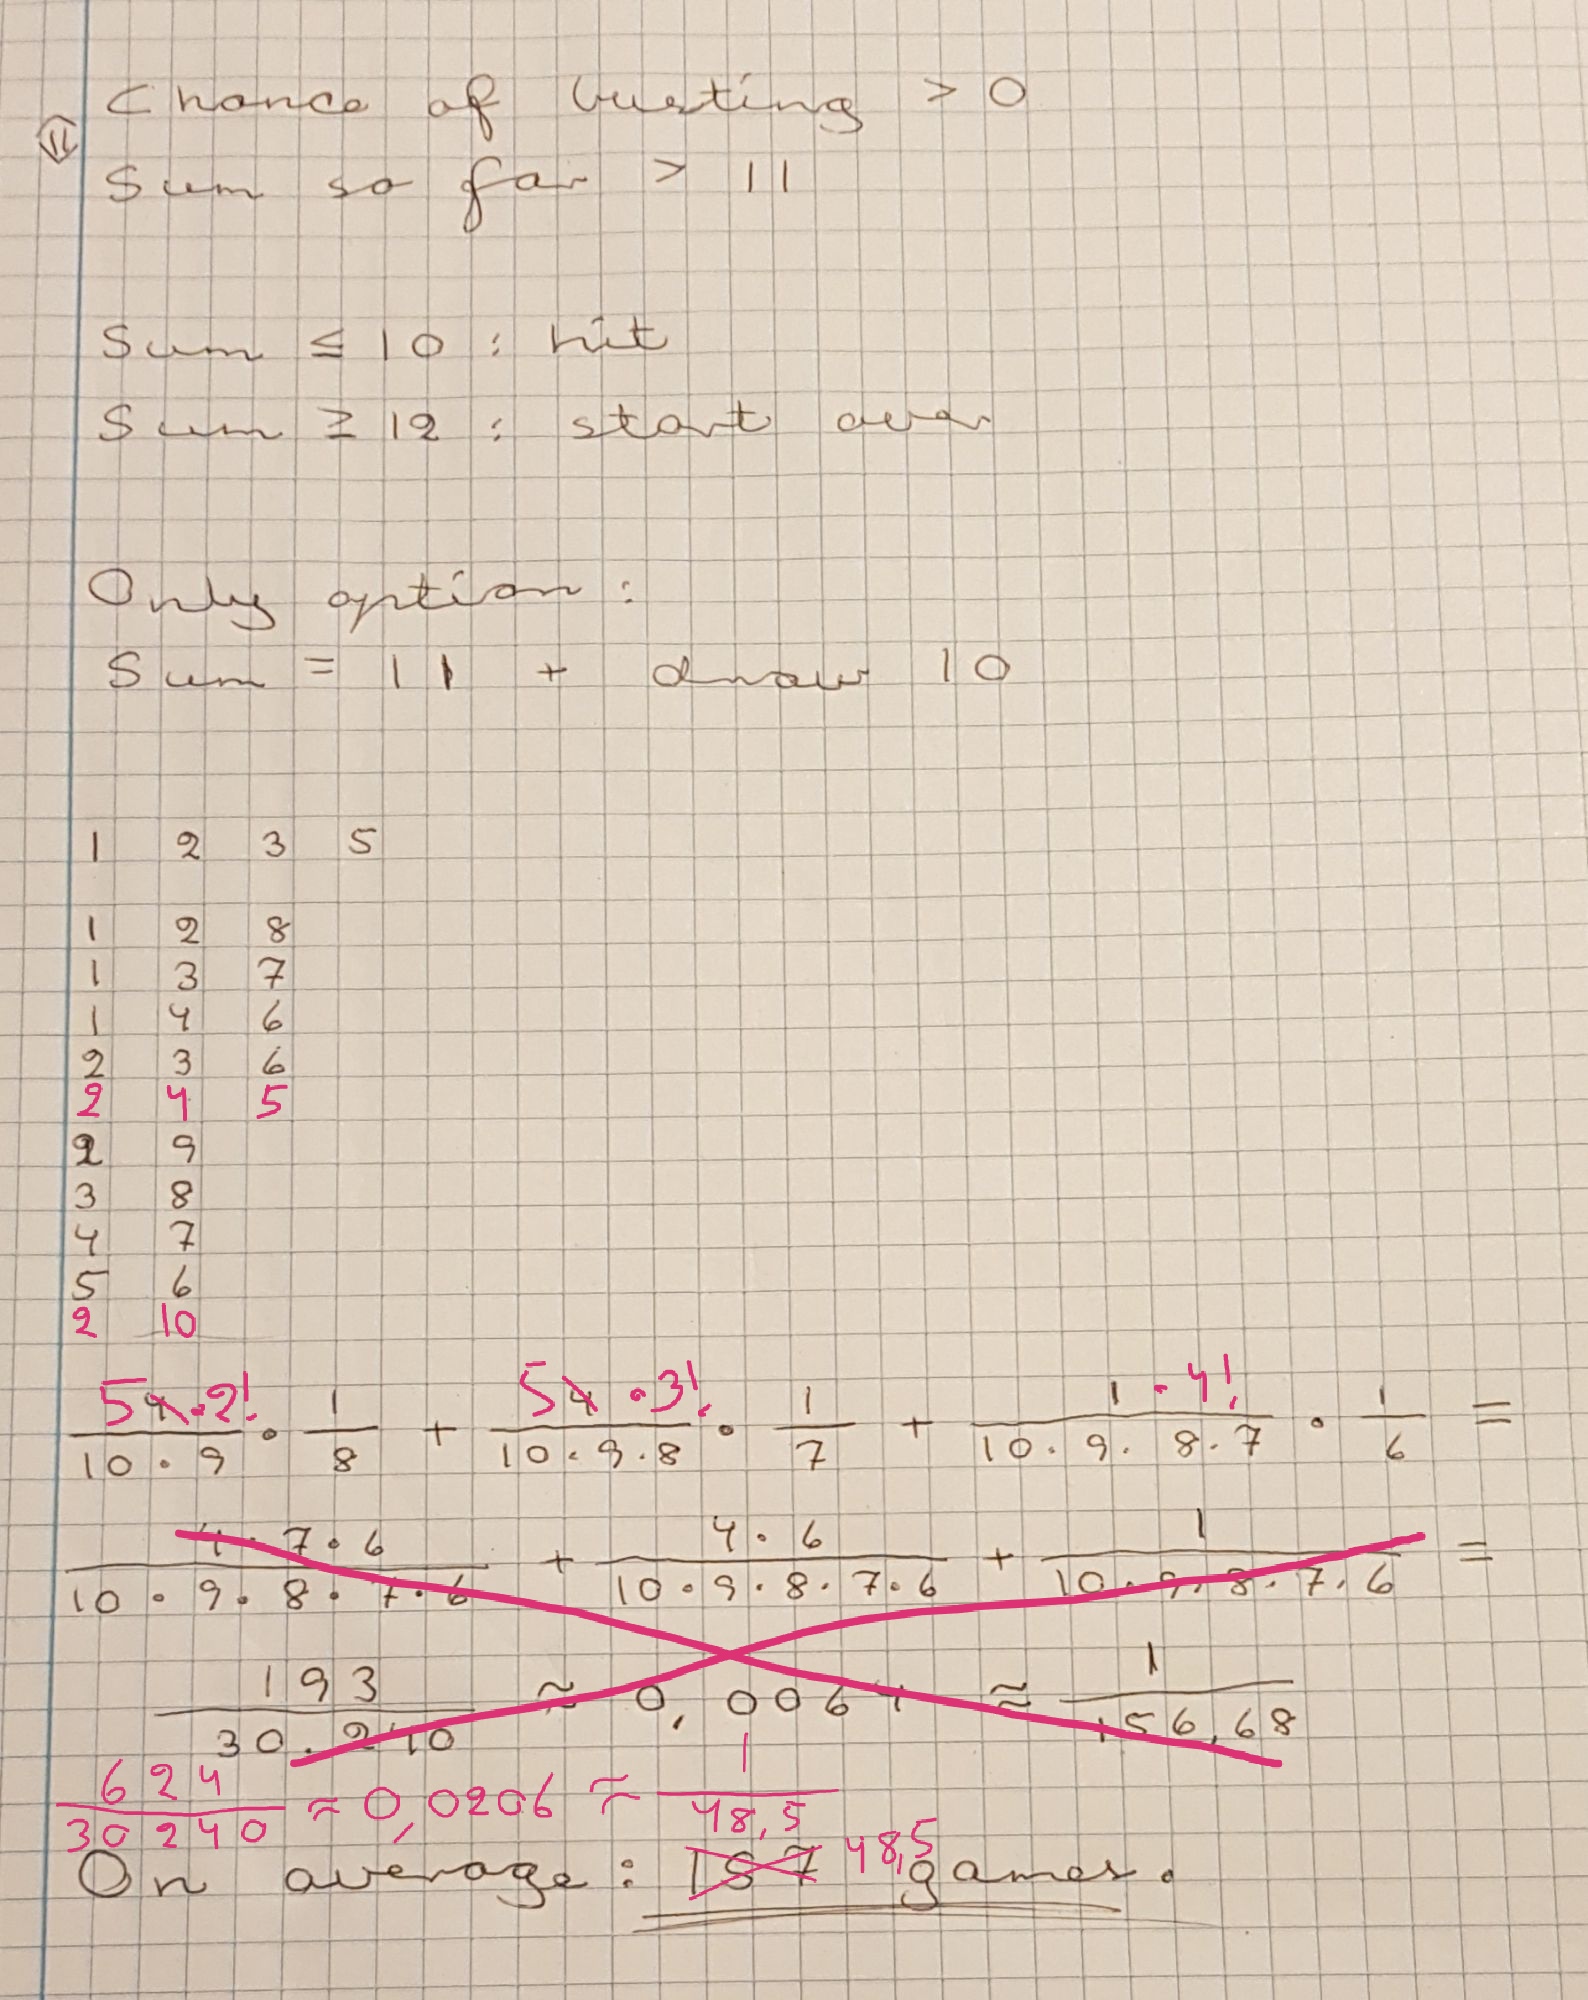 Chance of busting > 0
⇕
Sum so far > 11
Sum ≤ 10 : hit
Sum ≥ 12 : start over
Only option :
Sum = 11 + draw 10
1 2 3 5
1 2 8
1 3 7
1 4 6
2 3 6
2 4 5
2 9
3 8
4 7
5 6
2 10
5 4 · 2! / 10 · 9 · 1 / 8 + 5 4 · 3! / 10 · 9 · 8 · 1 / 7 + 1 · 4! / 10 · 9 · 8 · 7 · 1 / 6 =
4 · 7 · 6 / 10 · 9 · 8 · 7 · 6 + 4 · 6 / 10 · 9 · 8 · 7 · 6 + 1 / 10 · 9 · 8 · 7 · 6 =
193 / 30.240 ≈ 0,0064 ≈ 1 / 156,68
624 / 30240 ≈ 0,0206 ≈ 1 / 48,5
On average : 157 48,5 games.